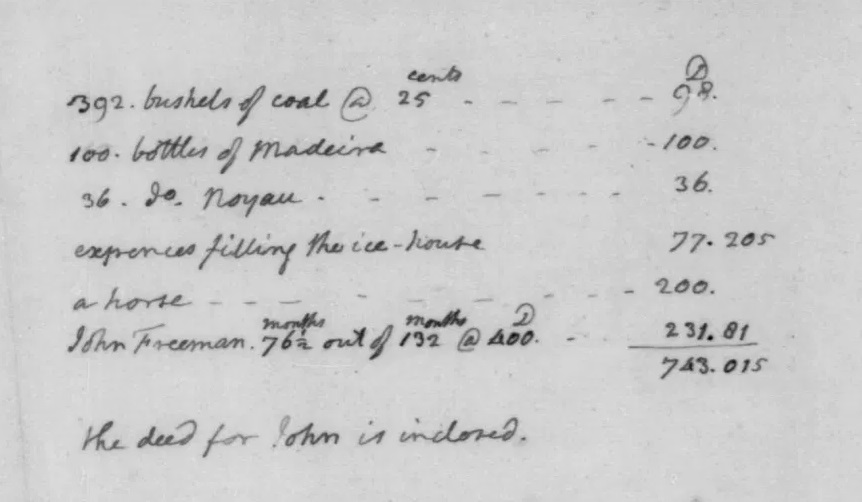 cents D
392. bushels of coal @ 25 - - - - - - 98.
100. bottles of Madeira - - - - - 100.
36. do. Noyau. - - - - - - - 36.
expences filling the ice-house 77.205
a horse - - - - - - - - - - 200.
months months D
John Freeman. 76½ out of 132 @ 400. - 231.81
743.015
the deed for John is inclosed.